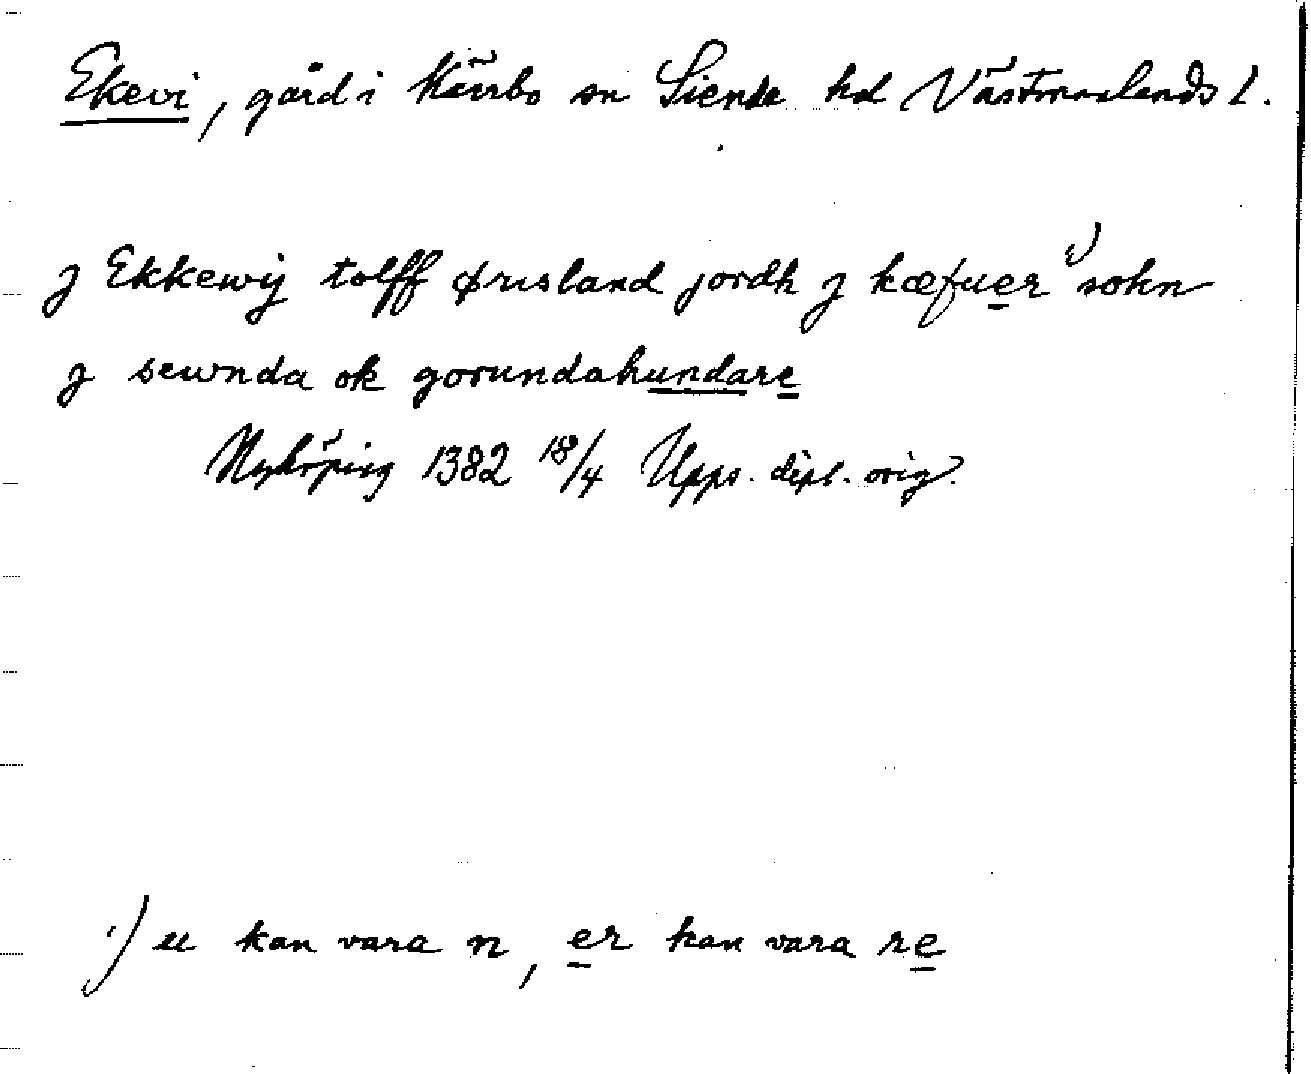 Ekevi, gård i Kärrbo sn Siende hd Västmanlands l.
j Ekkewij tolff ørisland jordh j kæfuer 1) sokn
j sewnda ok gorundahundare
Nyköping 1382 18/4 Upps. dipl. orig.
1) u kan vara n, er kan vara re